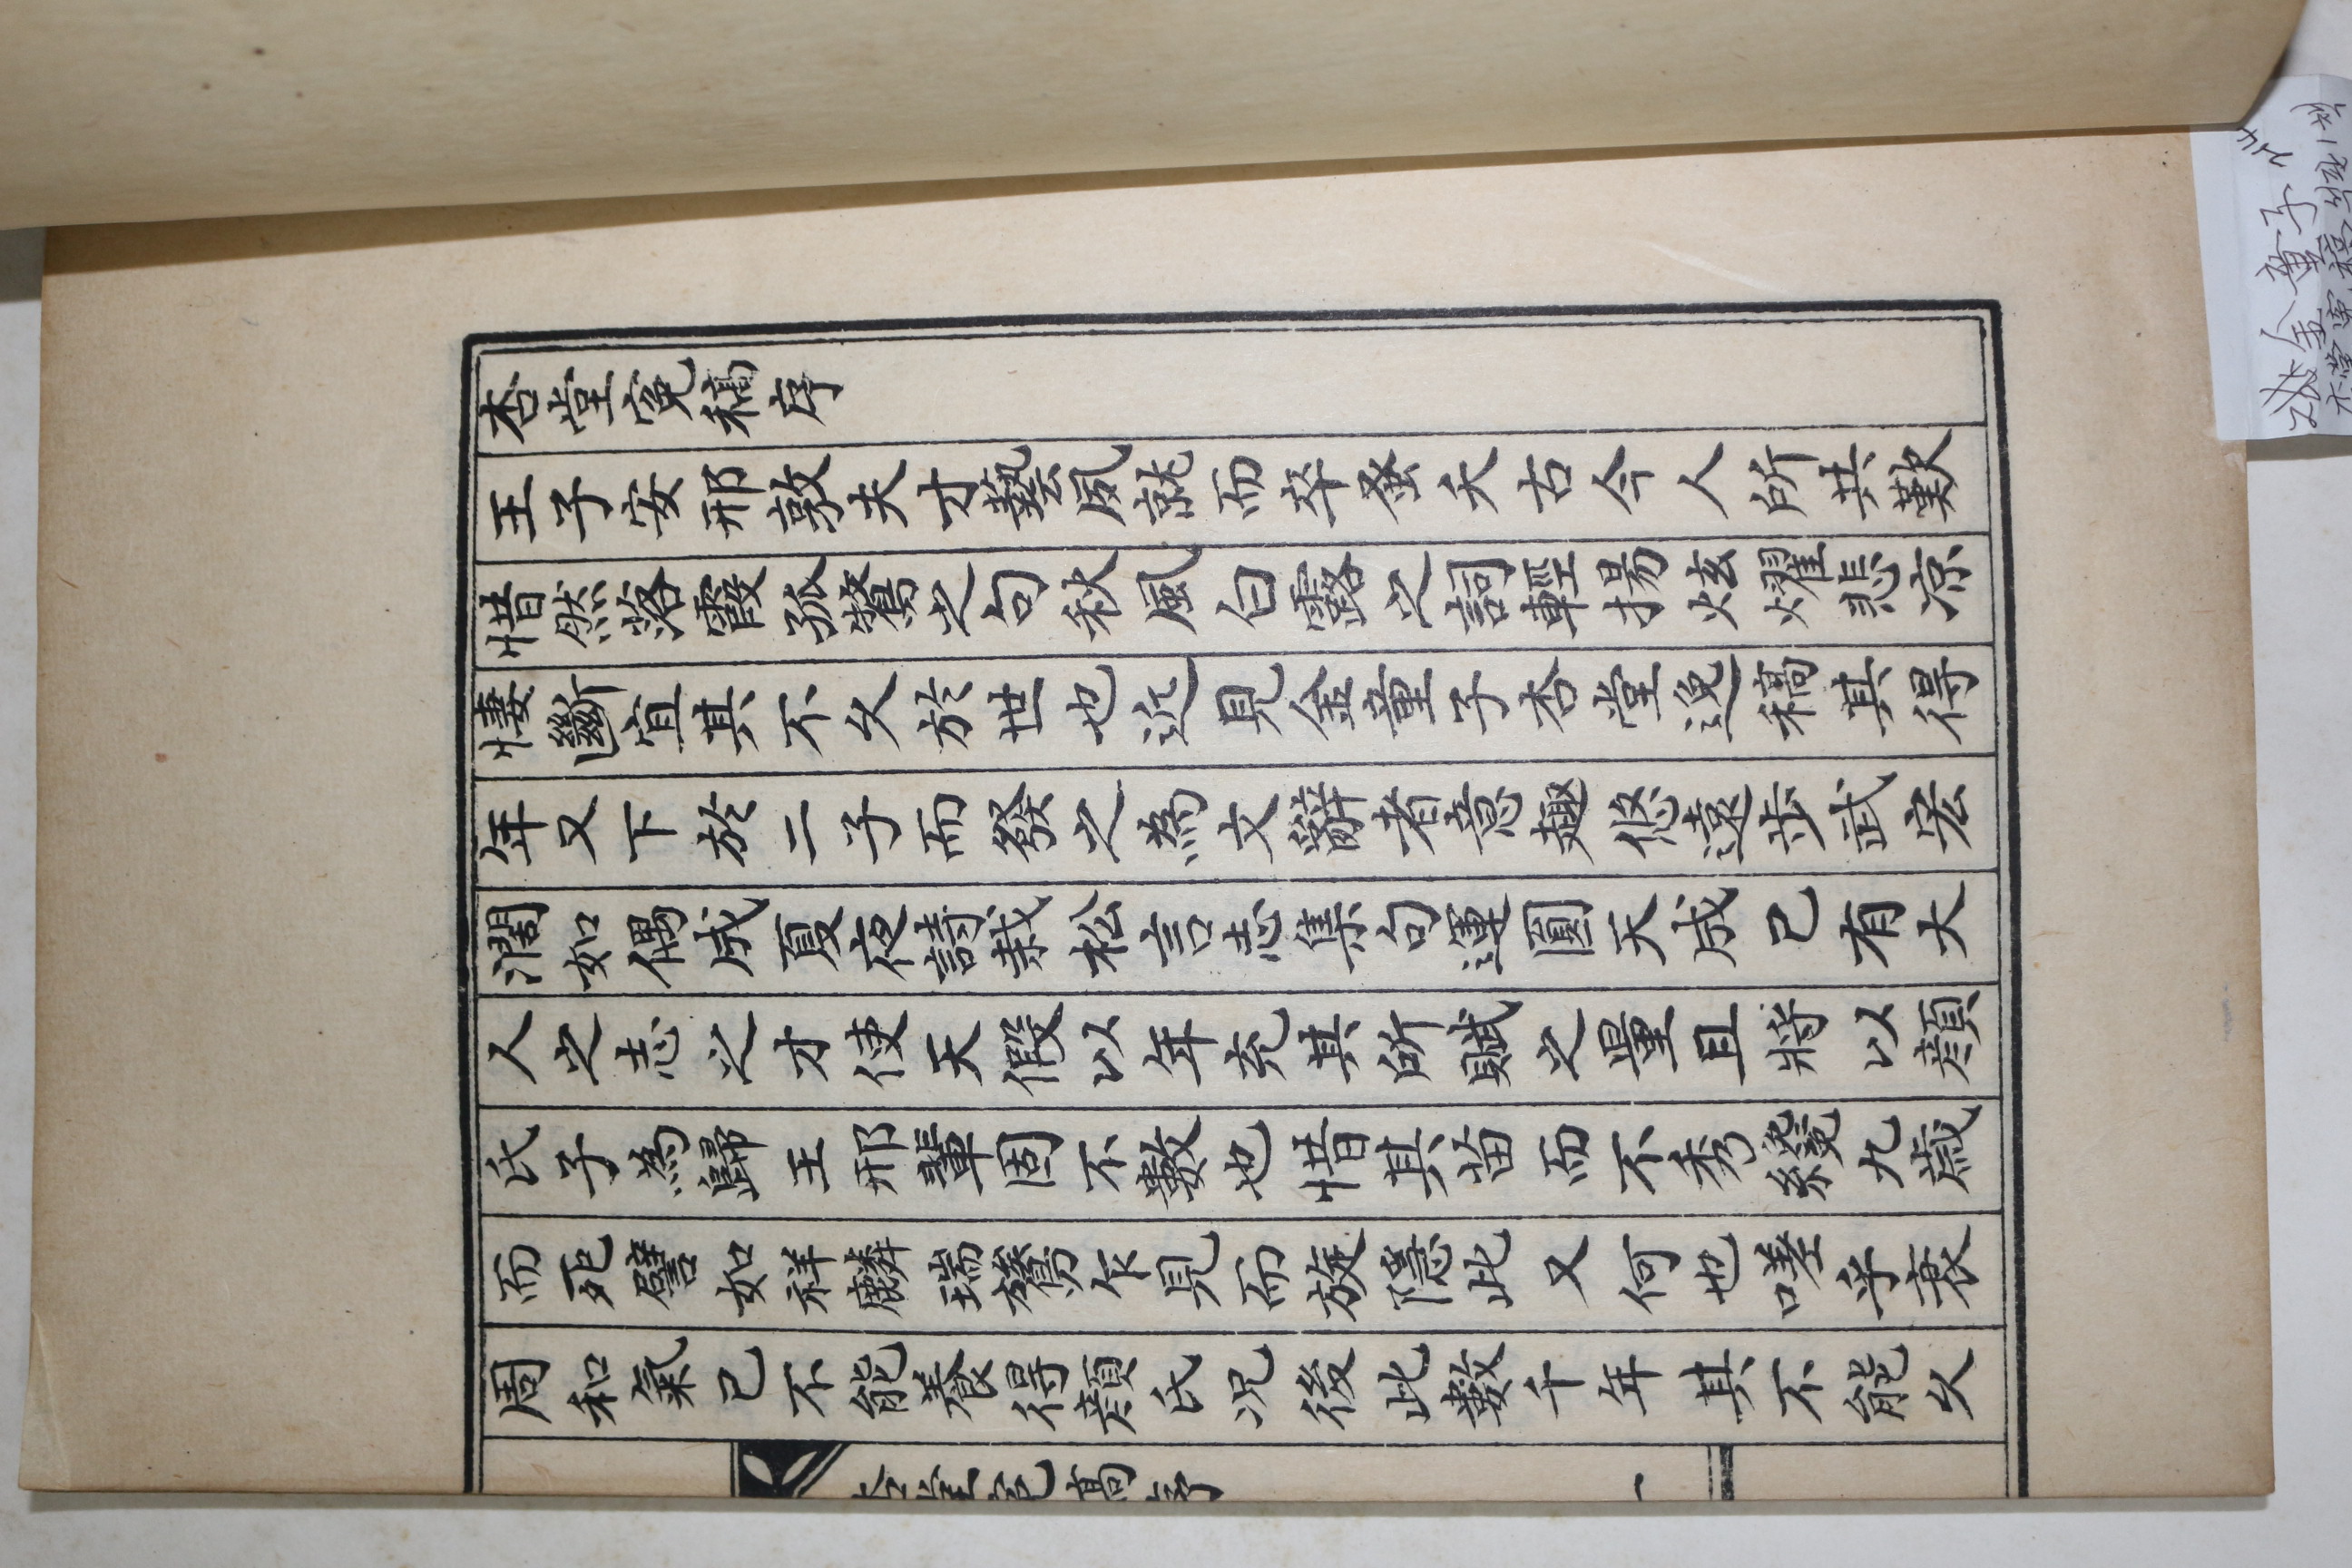 杏堂寃稿序
王子安邢敦夫才藝夙就而卒蚤夭古今人所共歎
惜然落霞孤鶩之句秋風白露之詞輕揚炫燿悲凉
悽斷宜其不久於世也近見金童子杏堂逸稿其得
年又下於二子而發之為文辭者意趣悠遠步武宏
濶如偶成夏夜詩栽松言志集句運圓天成已有大
人之志之才使天假以年充其所賦之量且將以顔
氏子為歸王邢輩固不數也惜其苗而不秀纔九歲
而死譬如祥麟瑞鷟乍見而旋隱此又何也嗟乎衰
周和氣已不能養得顔氏况後此數千年其不能久
杏堂寃稿序
一
金童子 214
杏堂寃稿 1책